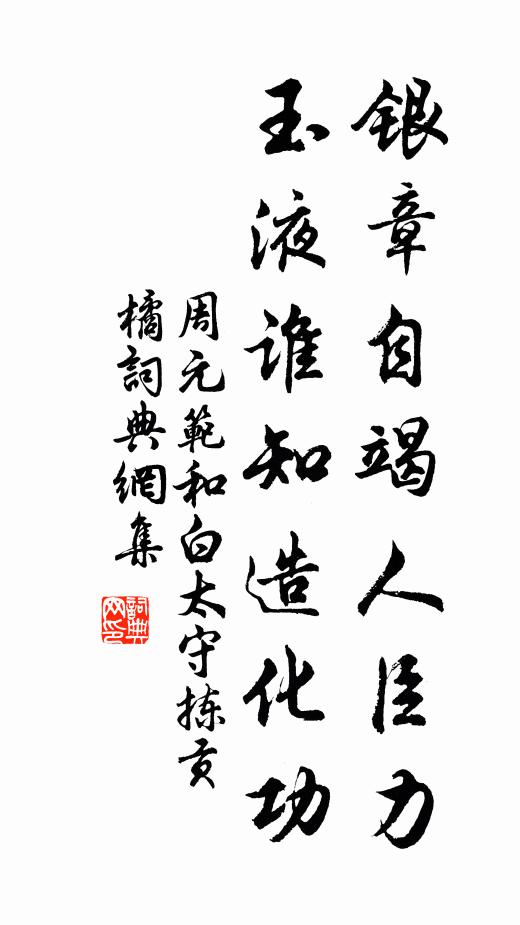 銀章自竭人臣力
玉液誰知造化功
周元範和白太守拣貢
橘詞典網集
詞典
网印